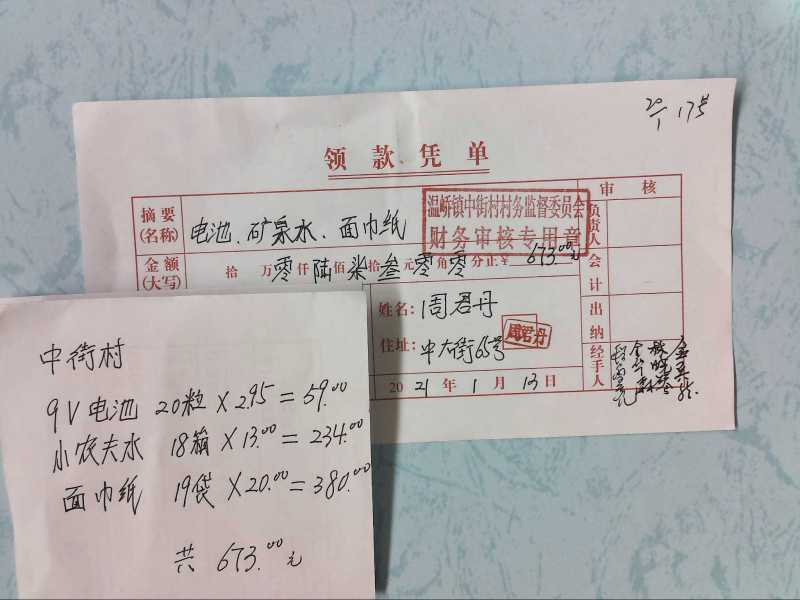 20/1 17号
领款凭单
审核
摘要(名称) 电池、矿泉水、面巾纸
温峤镇中街村村务监督委员会
财务审核专用章
负责人
金额(大写) 拾万零仟陆佰柒拾叁元零角零分止¥ 673.00元
会计
姓名: 周君丹
住址: 中大街65号
周君丹
出纳
经手人
2021年1月13日
中街村
9V电池 20粒×2.95=59.00
小农夫水 18箱×13.00=234.00
面巾纸 19袋×20.00=380.00
共 673.00元